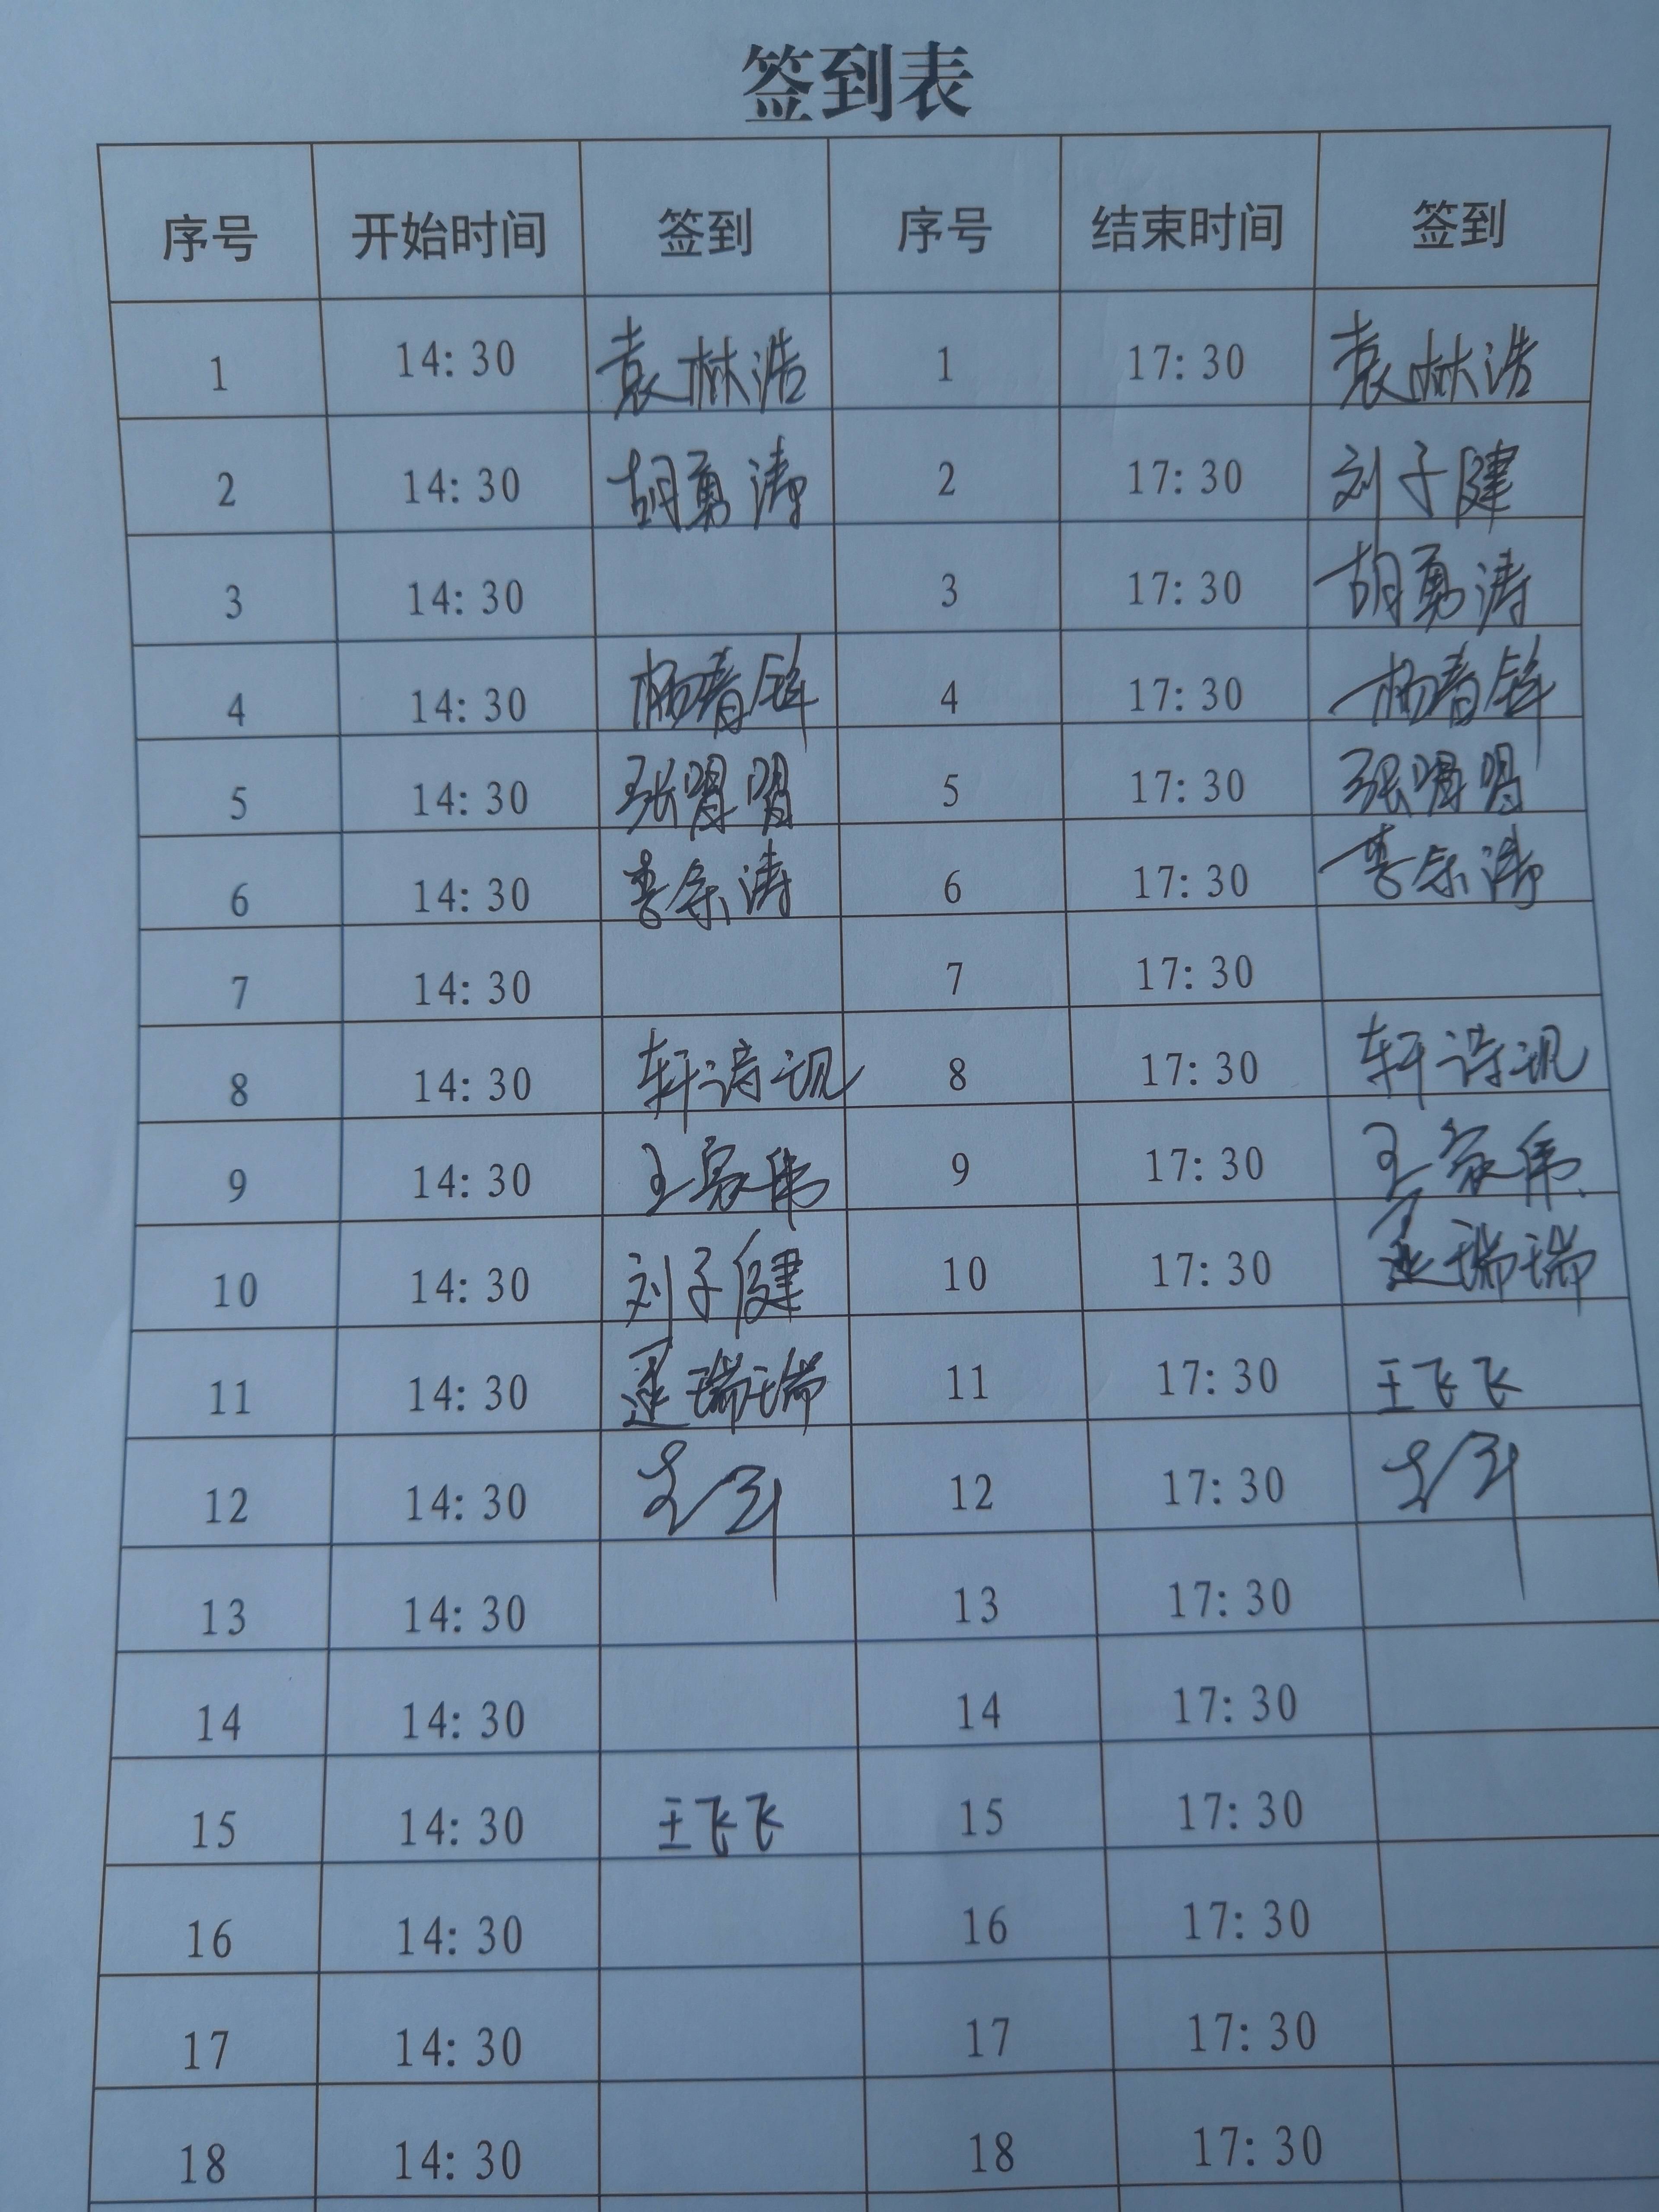 签到表
序号 开始时间 签到 序号 结束时间 签到
1 14:30 袁林浩 1 17:30 袁林浩
2 14:30 胡勇涛 2 17:30 刘子健
3 14:30 3 17:30 胡勇涛
4 14:30 4 17:30
5 14:30 5 17:30
6 14:30 6 17:30
7 14:30 7 17:30
8 14:30 8 17:30
9 14:30 王家伟 9 17:30 王家伟
10 14:30 刘子健 10 17:30 瑞瑞
11 14:30 瑞瑞 11 17:30 王飞飞
12 14:30 12 17:30
13 14:30 13 17:30
14 14:30 14 17:30
15 14:30 王飞飞 15 17:30
16 14:30 16 17:30
17 14:30 17 17:30
18 14:30 18 17:30